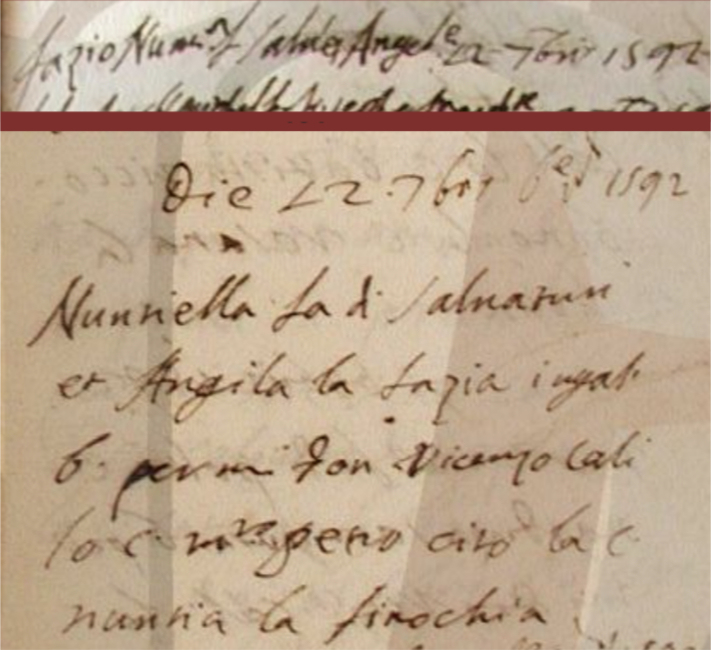 fazio Nun.ª f. Salv.e Angel.e 22 7bris 1592
Die 22 7bris 6e Ind 1592
Nunsiella fa di Salvaturi
et Angila la fazia iugali
b. per mi Don Vicenzo Cali
lo c. m.ro peno ciro la c.
nunsia la finochia